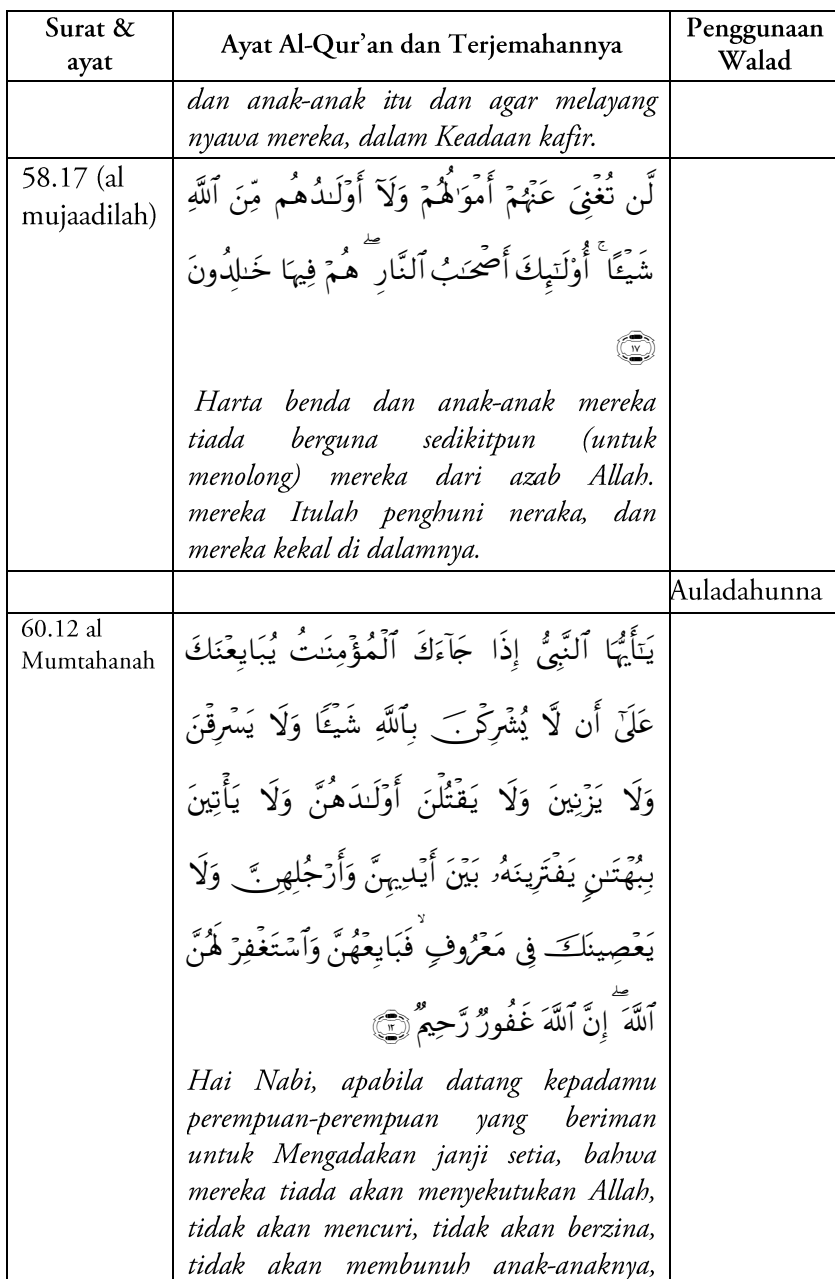 Surat & ayat | Ayat Al-Qur'an dan Terjemahannya | Penggunaan Walad
dan anak-anak itu dan agar melayang
nyawa mereka, dalam Keadaan kafir.
58.17 (al
mujaadilah)
لَّن تُغْنِىَ عَنْهُمْ أَمْوَٰلُهُمْ وَلَآ أَوْلَـٰدُهُم مِّنَ ٱللَّهِ
شَيْـًٔا ۚ أُو۟لَـٰٓئِكَ أَصْحَـٰبُ ٱلنَّارِ ۖ هُمْ فِيهَا خَـٰلِدُونَ
١٧
Harta benda dan anak-anak mereka
tiada berguna sedikitpun (untuk
menolong) mereka dari azab Allah.
mereka Itulah penghuni neraka, dan
mereka kekal di dalamnya.
Auladahunna
60.12 al
Mumtahanah
يَـٰٓأَيُّهَا ٱلنَّبِىُّ إِذَا جَآءَكَ ٱلْمُؤْمِنَـٰتُ يُبَايِعْنَكَ
عَلَىٰٓ أَن لَّا يُشْرِكْنَ بِٱللَّهِ شَيْـًٔا وَلَا يَسْرِقْنَ
وَلَا يَزْنِينَ وَلَا يَقْتُلْنَ أَوْلَـٰدَهُنَّ وَلَا يَأْتِينَ
بِبُهْتَـٰنٍ يَفْتَرِينَهُۥ بَيْنَ أَيْدِيهِنَّ وَأَرْجُلِهِنَّ وَلَا
يَعْصِينَكَ فِى مَعْرُوفٍ ۙ فَبَايِعْهُنَّ وَٱسْتَغْفِرْ لَهُنَّ
ٱللَّهَ ۖ إِنَّ ٱللَّهَ غَفُورٌ رَّحِيمٌ ١٢
Hai Nabi, apabila datang kepadamu
perempuan-perempuan yang beriman
untuk Mengadakan janji setia, bahwa
mereka tiada akan menyekutukan Allah,
tidak akan mencuri, tidak akan berzina,
tidak akan membunuh anak-anaknya,